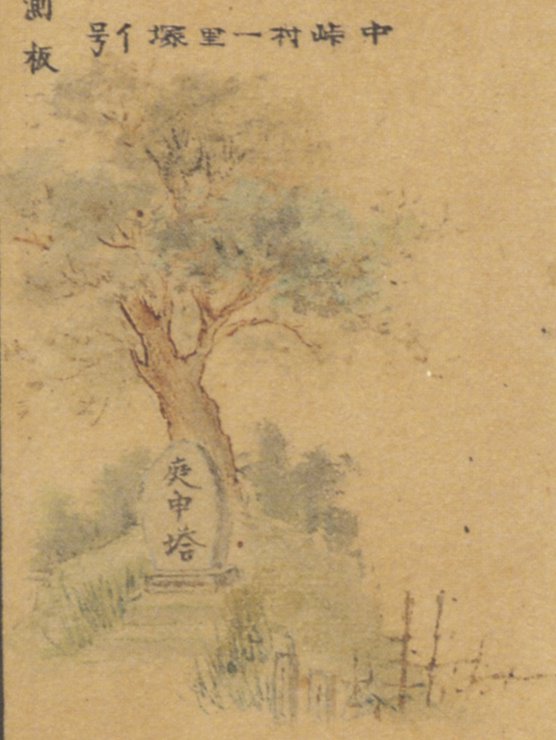 中峠村一里塚イ号
測板
庚申塔